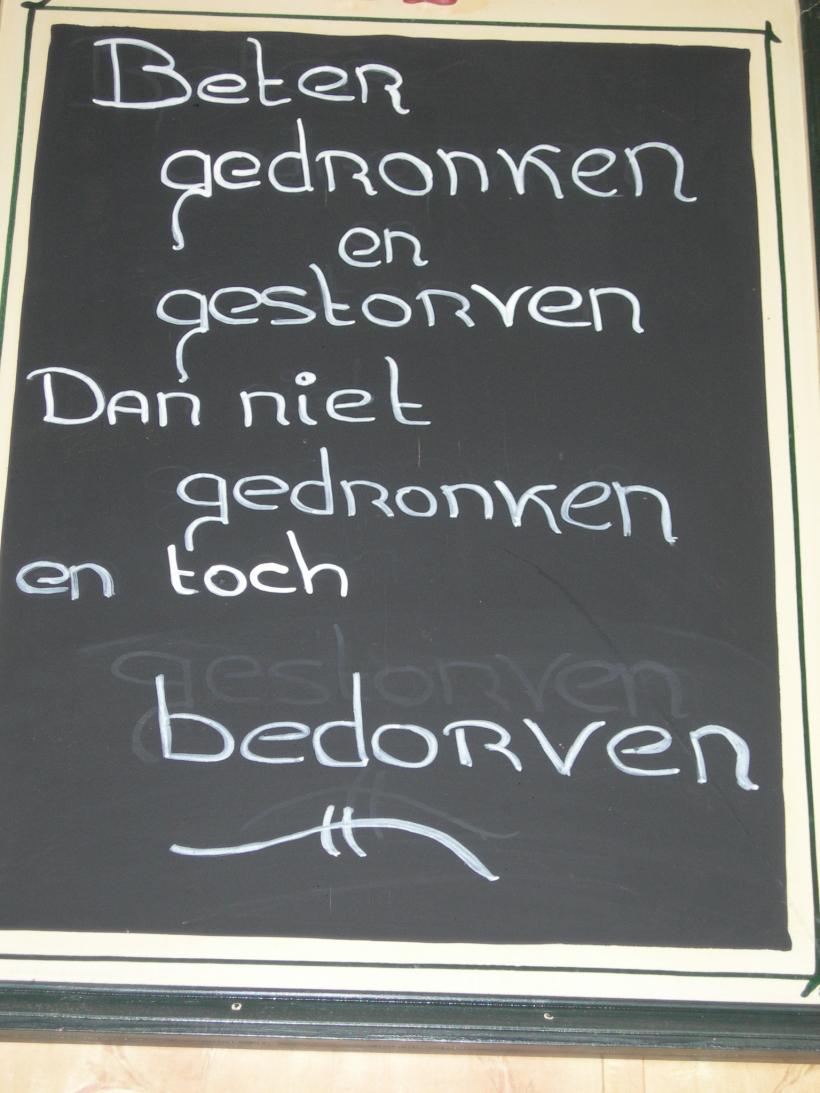 Beter
gedronken
en
gestorven
Dan niet
gedronken
en toch
gestorven
bedorven